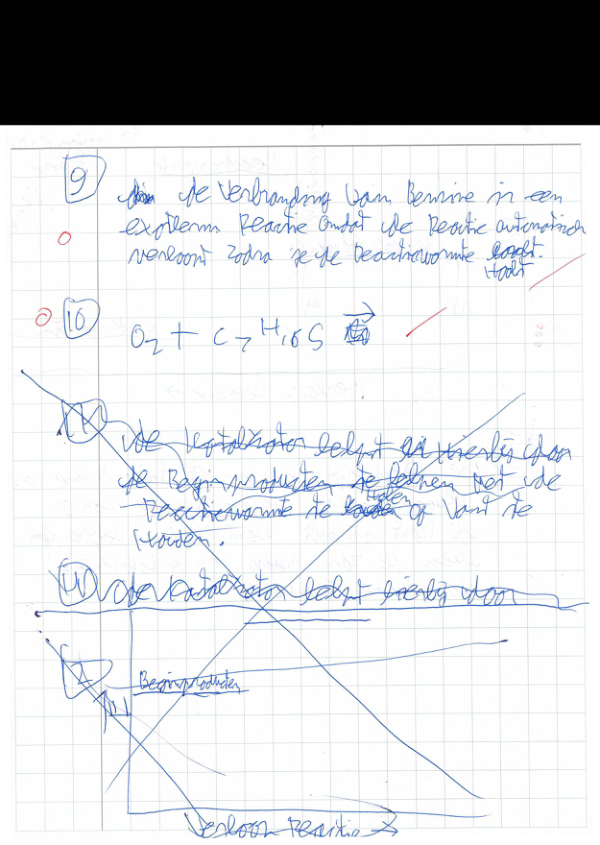 9
de Verbranding van Benzine is een
exotherm Reactie omdat de Reactie automatisch
verloopt zodra ze de reactiewarmte
Haalt
10
O2 + C7H16S →
11
de Katalysator helpt hierbij door
de Beginproducten te helpen Met de
Reactiewarmte te Halen of Vast te
Houden.
11 de Katalysator helpt hierbij door
12
Beginproducten
Verloop Reactie →